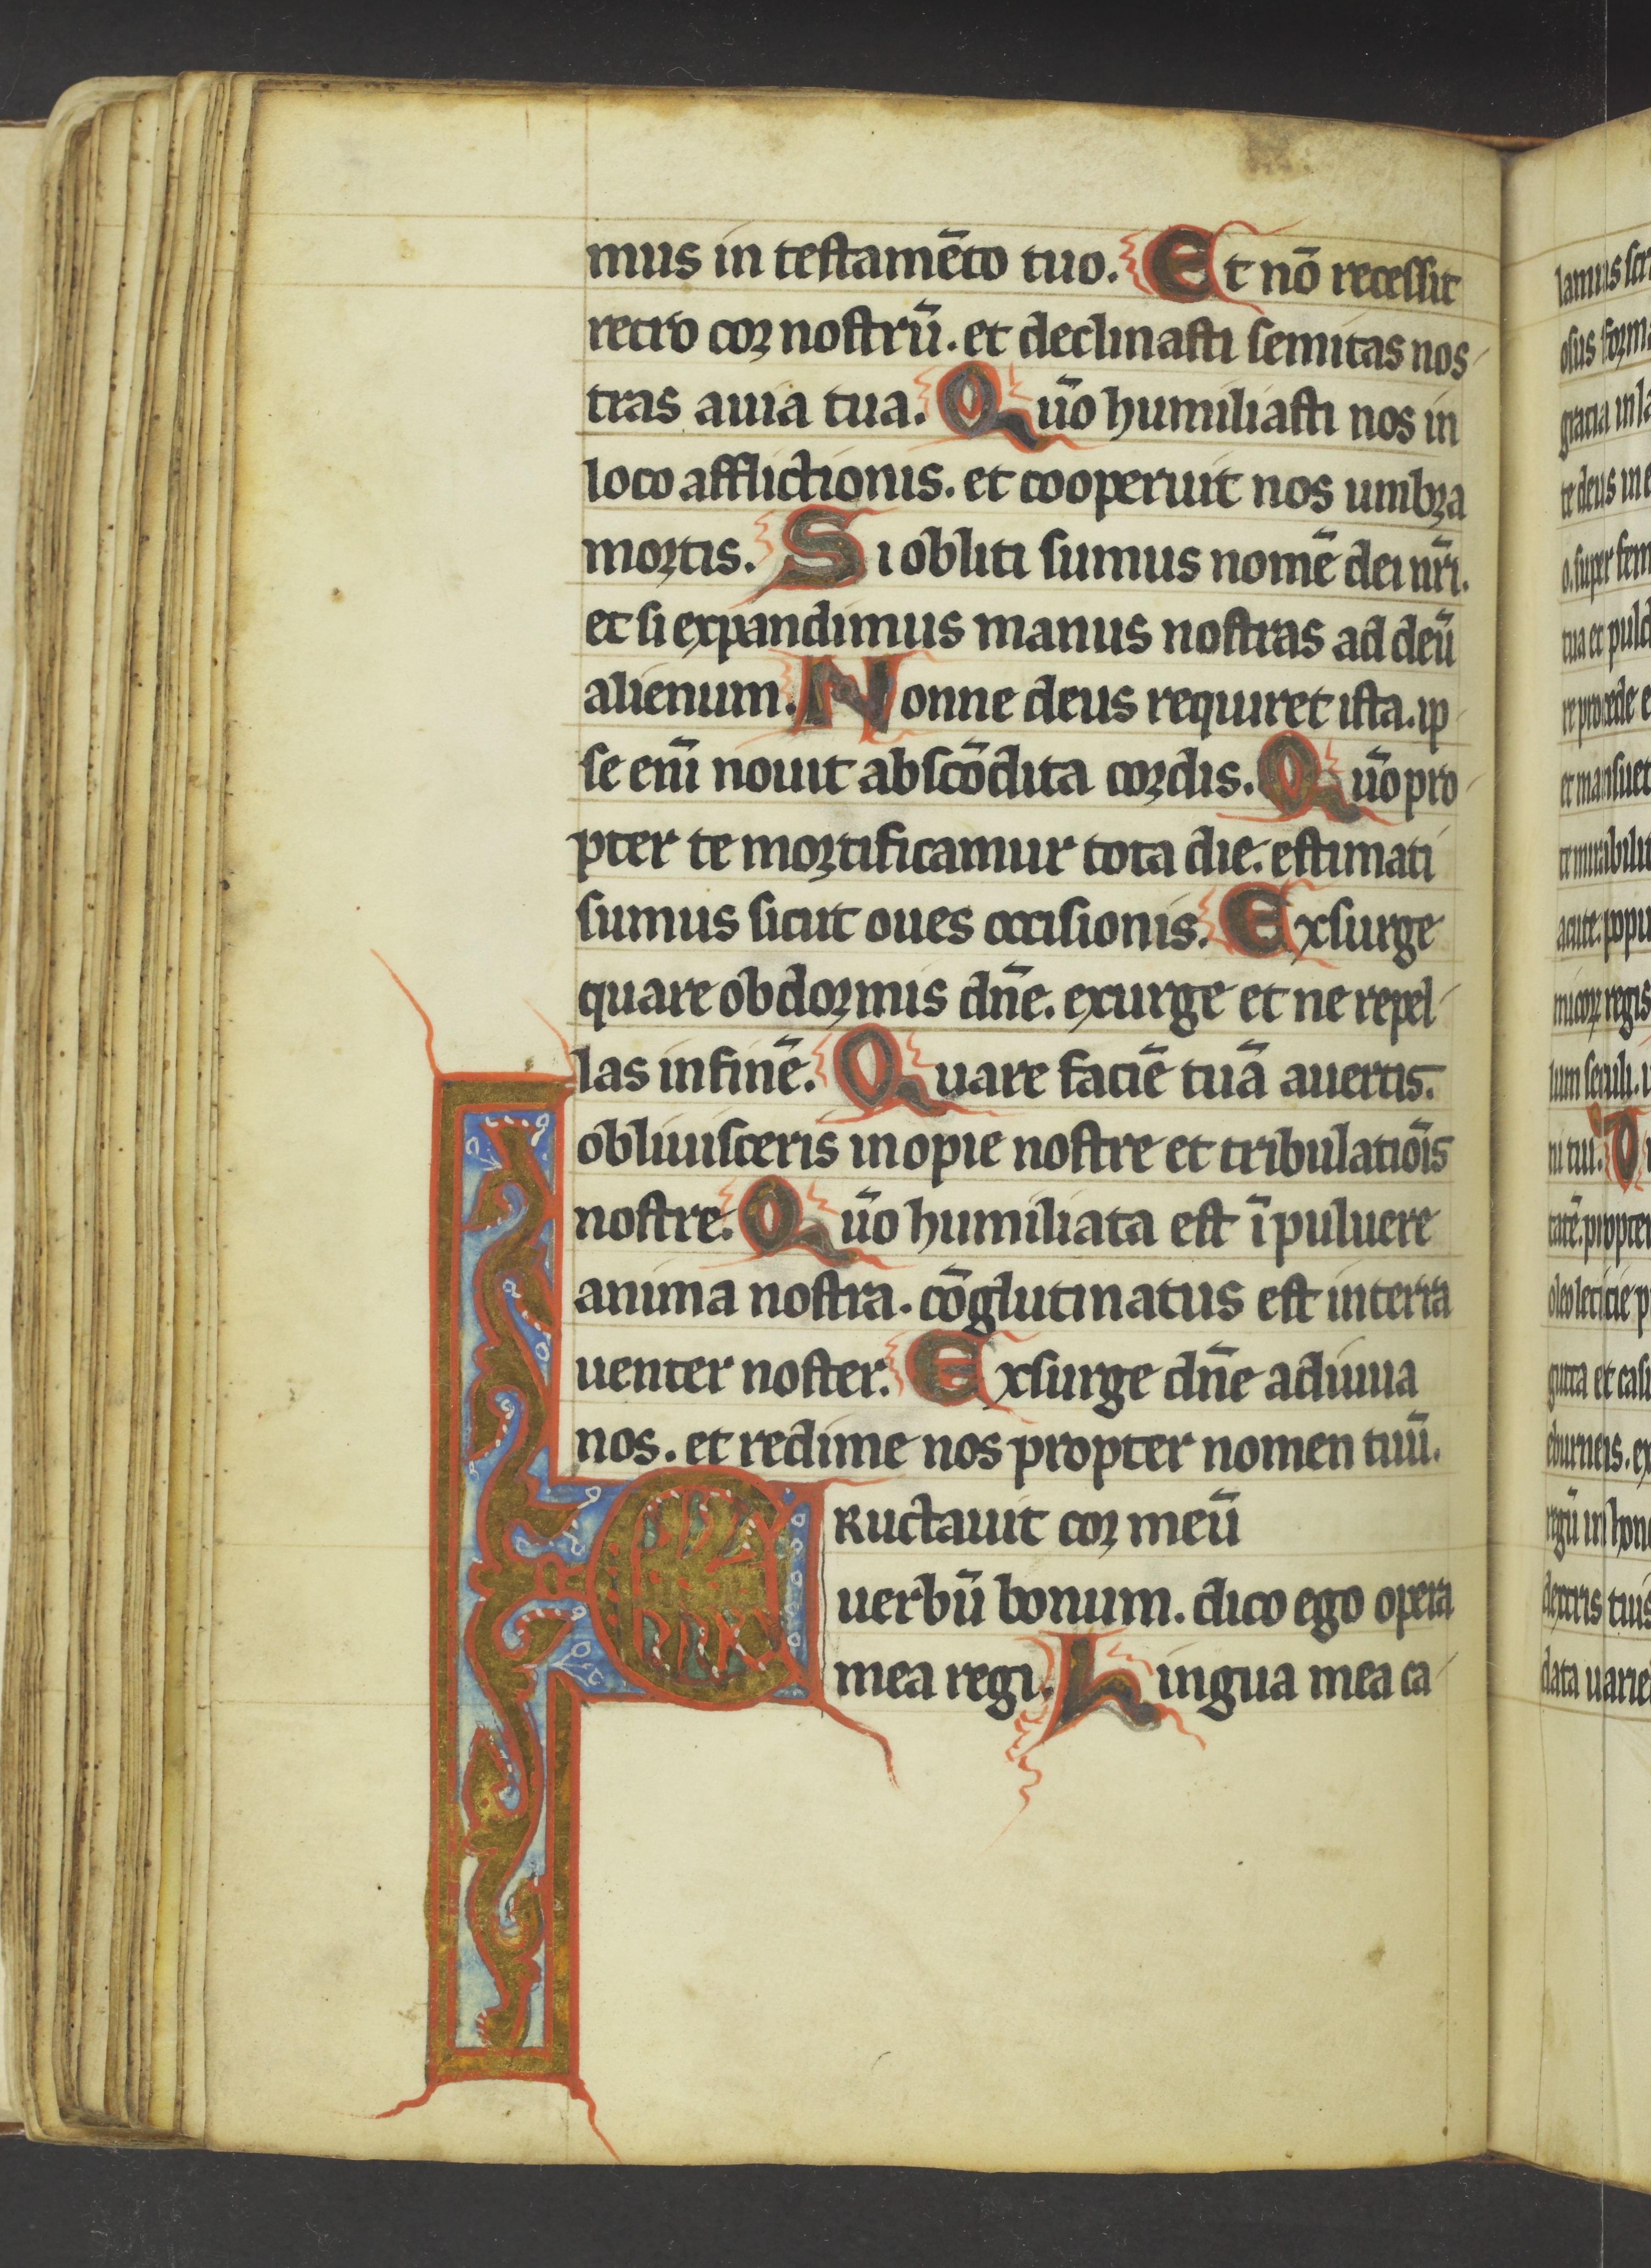 mus in testamēto tuo. Et nō recessit
retro cor nostrū. et declinasti semitas nos
tras a uia tua. Qūo humiliasti nos in
loco afflictionis. et cooperuit nos umbra
mortis. Si obliti sumus nomē dei nr̄i.
et si expandimus manus nostras ad deū
alienum. Nonne deus requiret ista. ip
se eni̅ nouit abscōdita cordis. Qūo pro
pter te mortificamur tota die. estimati
sumus sicut oues occisionis. Exsurge
quare obdormis dn̄e. exurge et ne repel
las in finē. Quare faciē tuā auertis.
obliuisceris inopie nostre et tribulatiōis
nostre. Qūo humiliata est ī puluere
anima nostra. cōglutinatus est in terra
uenter noster. Exsurge dn̄e adiuua
nos. et redime nos propter nomen tuū.
ERuctauit cor meū
uerbū bonum. dico ego opera
mea regi. Lingua mea ca
te deus in e
tua et pulc
re procede e
et mansuet
te mirabilit
acute. popu
micor regis
lum seculi. u
ni tui. D
tatē. propter
oleo leticie p
gutta et casi
eburneis. ex
regū in hono
dextris tuis
data uarie